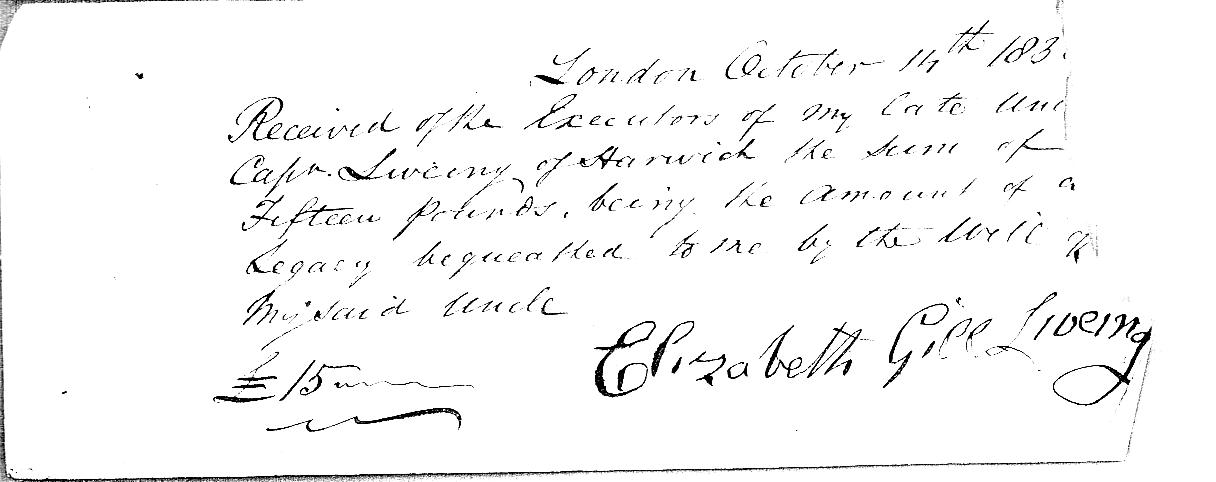 London October 14th 183
Received of the Executors of my late Unc
Capn. Liveing of Harwich the sum of
Fifteen Pounds, being the amount of a
Legacy bequeathed to me by the Will of
My said Uncle
£15
Elizabeth Gill Liveing